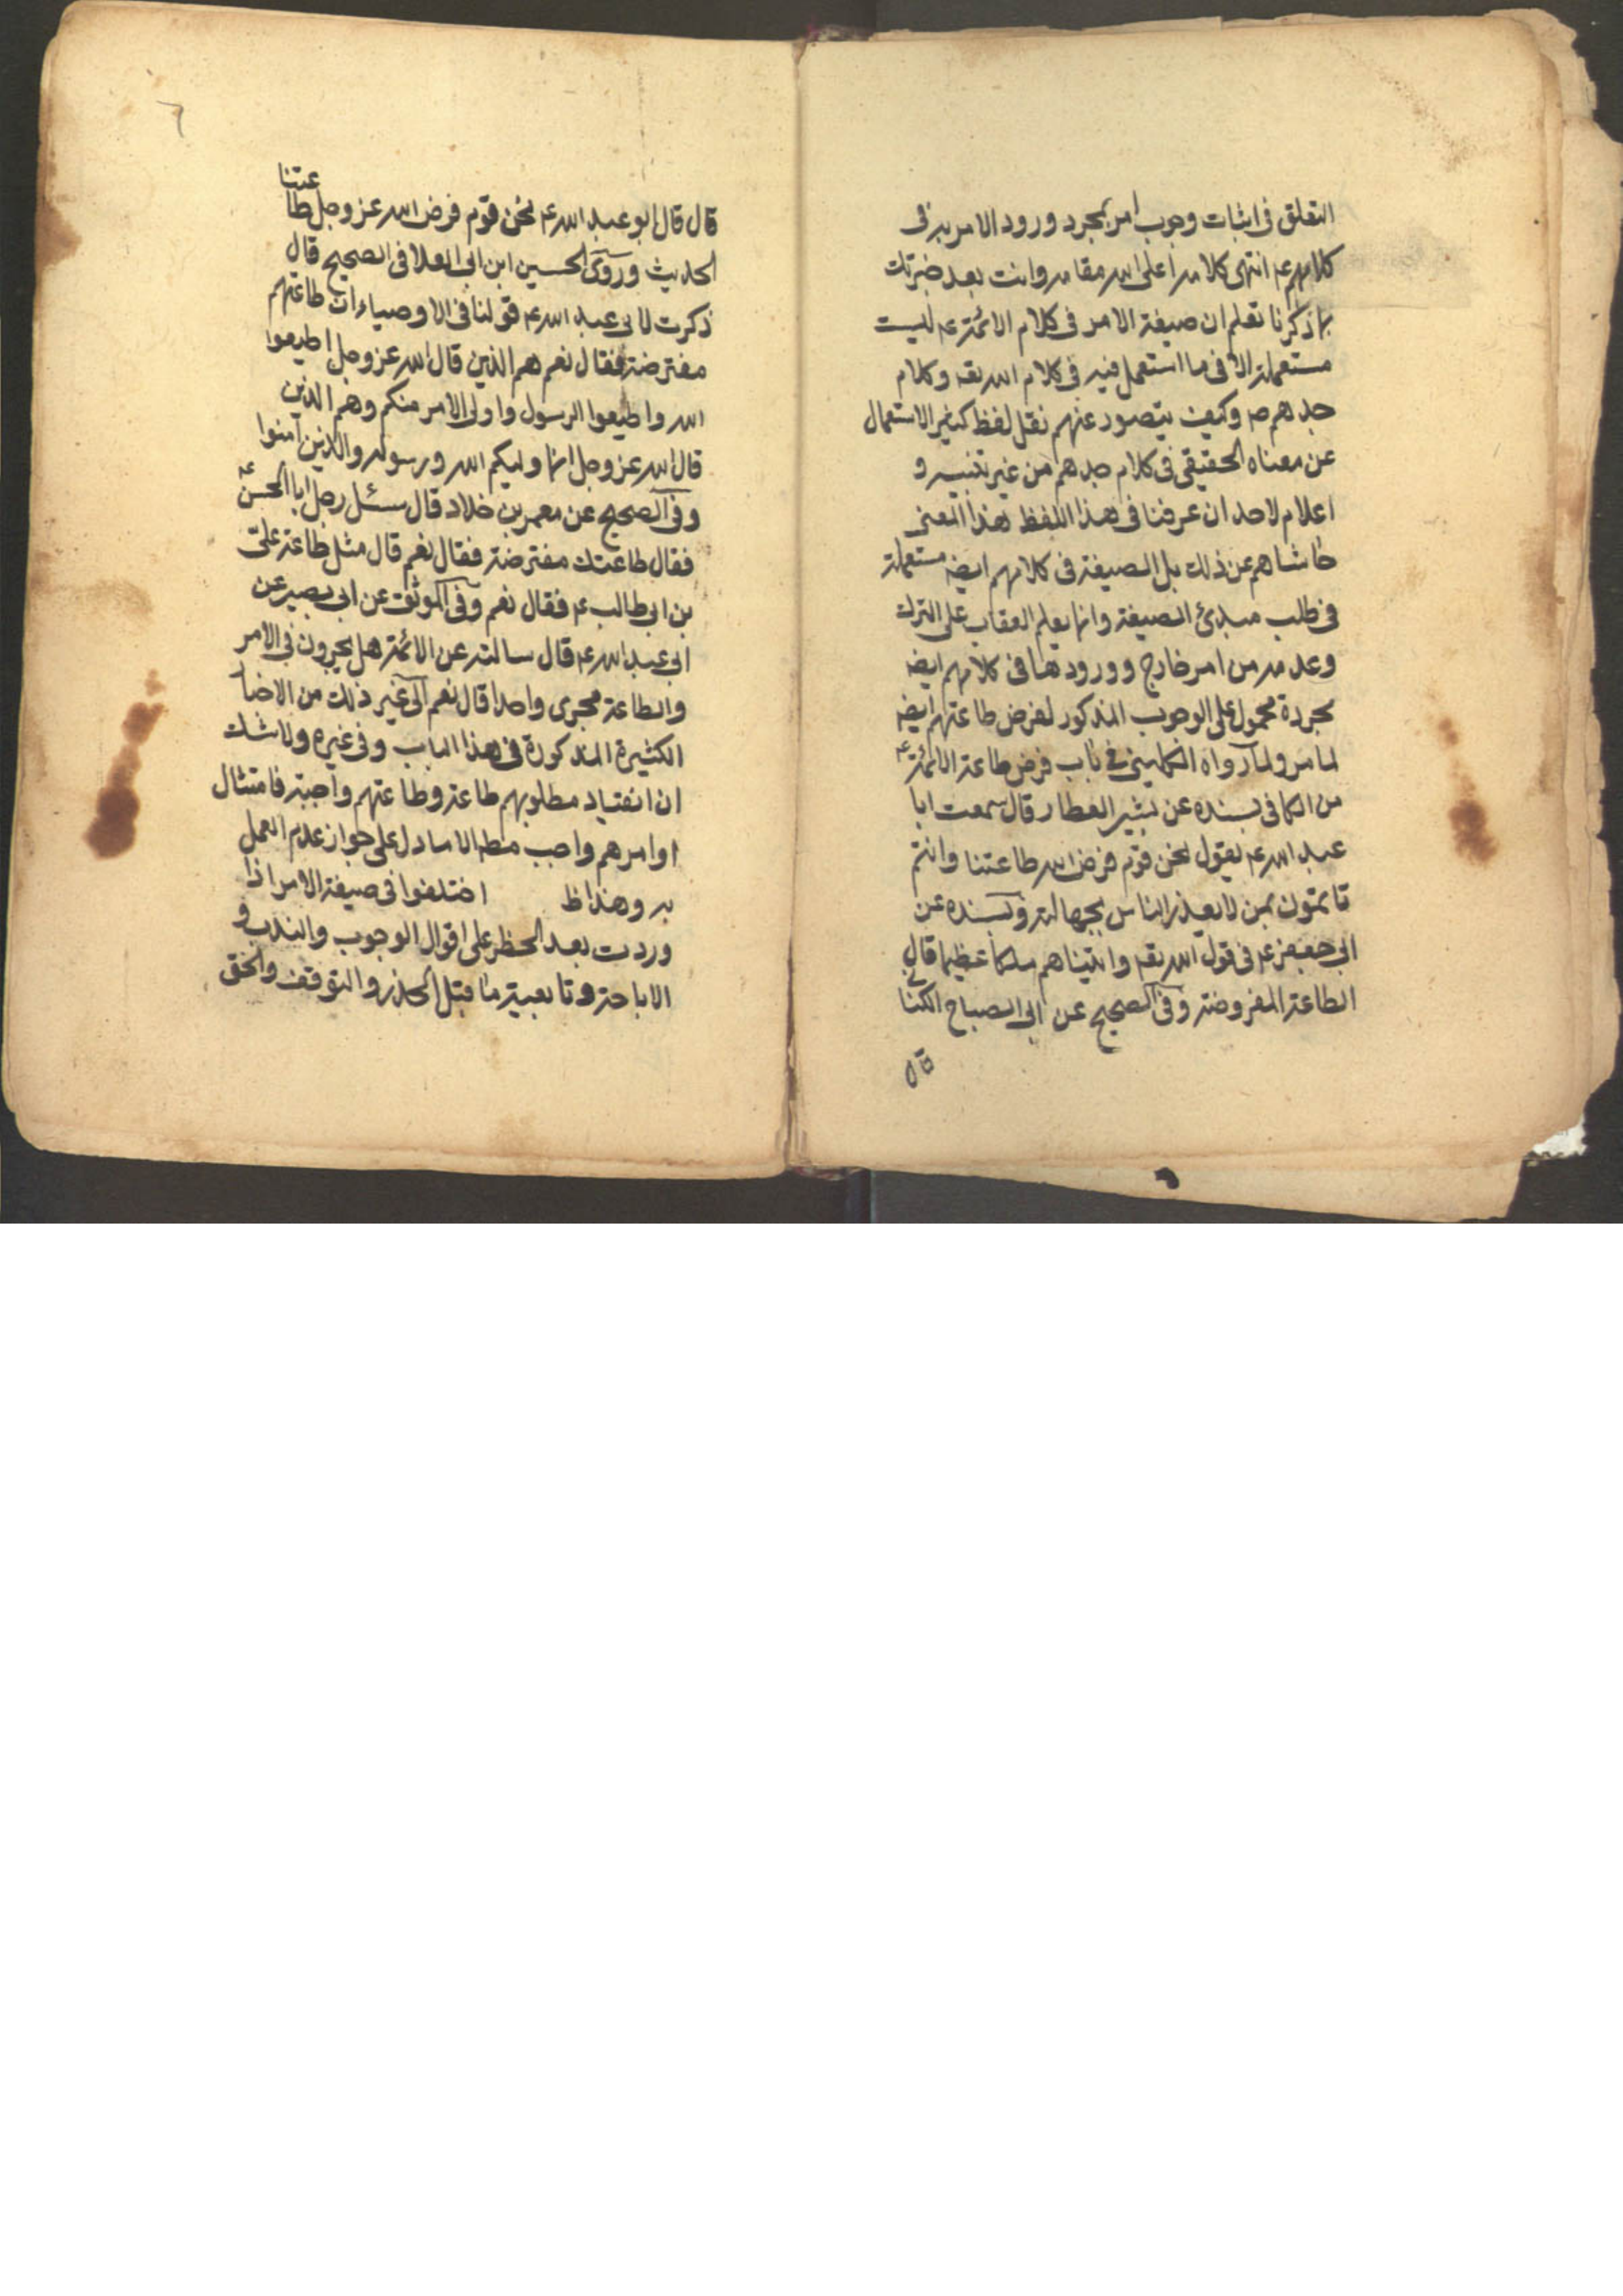 التعلق فى اثبات وجوب امر بمجرد ورود الامر به فى
كلامهم ع انتهى كلامه اعلى الله مقامه وانت بعد خبرتك
بما ذكرنا تعلم ان صيغة الامر فى كلام الائمة ع ليست
مستعملة الا فى ما استعمل فيه فى كلام الله تعه وكلام
جدهم ص وكيف يتصور عنهم نقل لفظ كثير الاستعمال
عن معناه الحقيقى فى كلام جدهم من غير تنبيه و
اعلام لاحد ان عرفنا فى هذا اللفظ هذا المعنى
حاشاهم عن ذلك بل الصيغة فى كلامهم ايضه مستعملة
فى طلب مبدئ الصيغة وانما يعلم العقاب على الترك
وعدمه من امر خارج وورودها فى كلامهم ايضه
مجردة محمول على الوجوب المذكور لفرض طاعتهم ايضه
لما مر ولما رواه الكلينى فى باب فرض طاعة الائمة ع
من الكافى بسنده عن بشير العطار قال سمعت ابا
عبد الله ع يقول نحن قوم فرض الله طاعتنا وانتم
تاتمون بمن لا يعذر الناس بجهالته وبسنده عن
ابى جعفر ع فى قول الله تعه واتيناهم ملكا عظيما قال
الطاعة المفروضة وفى الصحيح عن ابى الصباح الكنانى
قال
٦
عتنا
قال قال ابو عبد الله ع نحن قوم فرض الله عز وجل طا
الحديث وروى الحسين ابن ابى العلا فى الصحيح قال
ذكرت لابى عبد الله ع قولنا فى الاوصياء ان طاعتهم
مفترضة فقال نعم هم الذين قال الله عز وجل اطيعوا
الله واطيعوا الرسول واولى الامر منكم وهم الذين
قال الله عز وجل انما وليكم الله ورسوله والذين آمنوا
وفى الصحيح عن معمر بن خلاد قال سئل رجل ابا الحسن ع
فقال طاعتك مفترضة فقال نعم قال مثل طاعة على
بن ابى طالب ع فقال نعم وفى الموثق عن ابى بصير عن
ابى عبد الله ع قال سالته عن الائمة هل يجرون فى الامر
والطاعة مجرى واحدا قال نعم الى غير ذلك من الاخبا
الكثيرة المذكورة فى هذا الباب وفى غيره ولا شك
ان انقياد مطلوبهم طاعة وطاعتهم واجبة فامتثال
اوامرهم واجب مطه الا ما دل على جواز عدم العمل
به وهذا ظ اختلفوا فى صيغة الامر اذا
وردت بعد الحظر على اقوال الوجوب والندب و
الاباحة وتابعية ما قبل الحذر والتوقف والحق